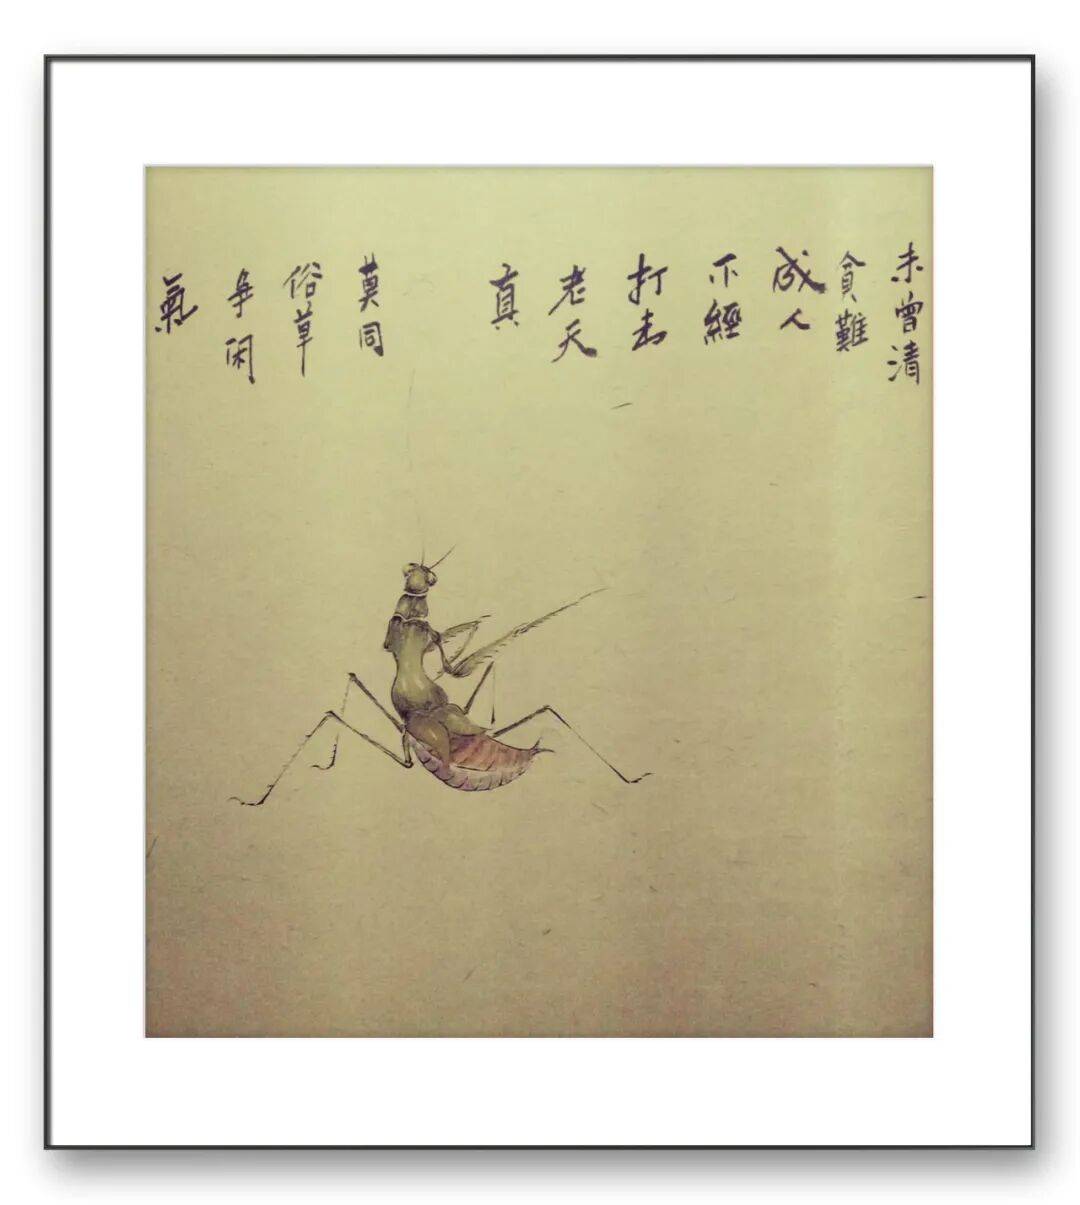 未曾清
貪難
成人
不經
打击
老天
真
莫同
俗草
争闲
氣